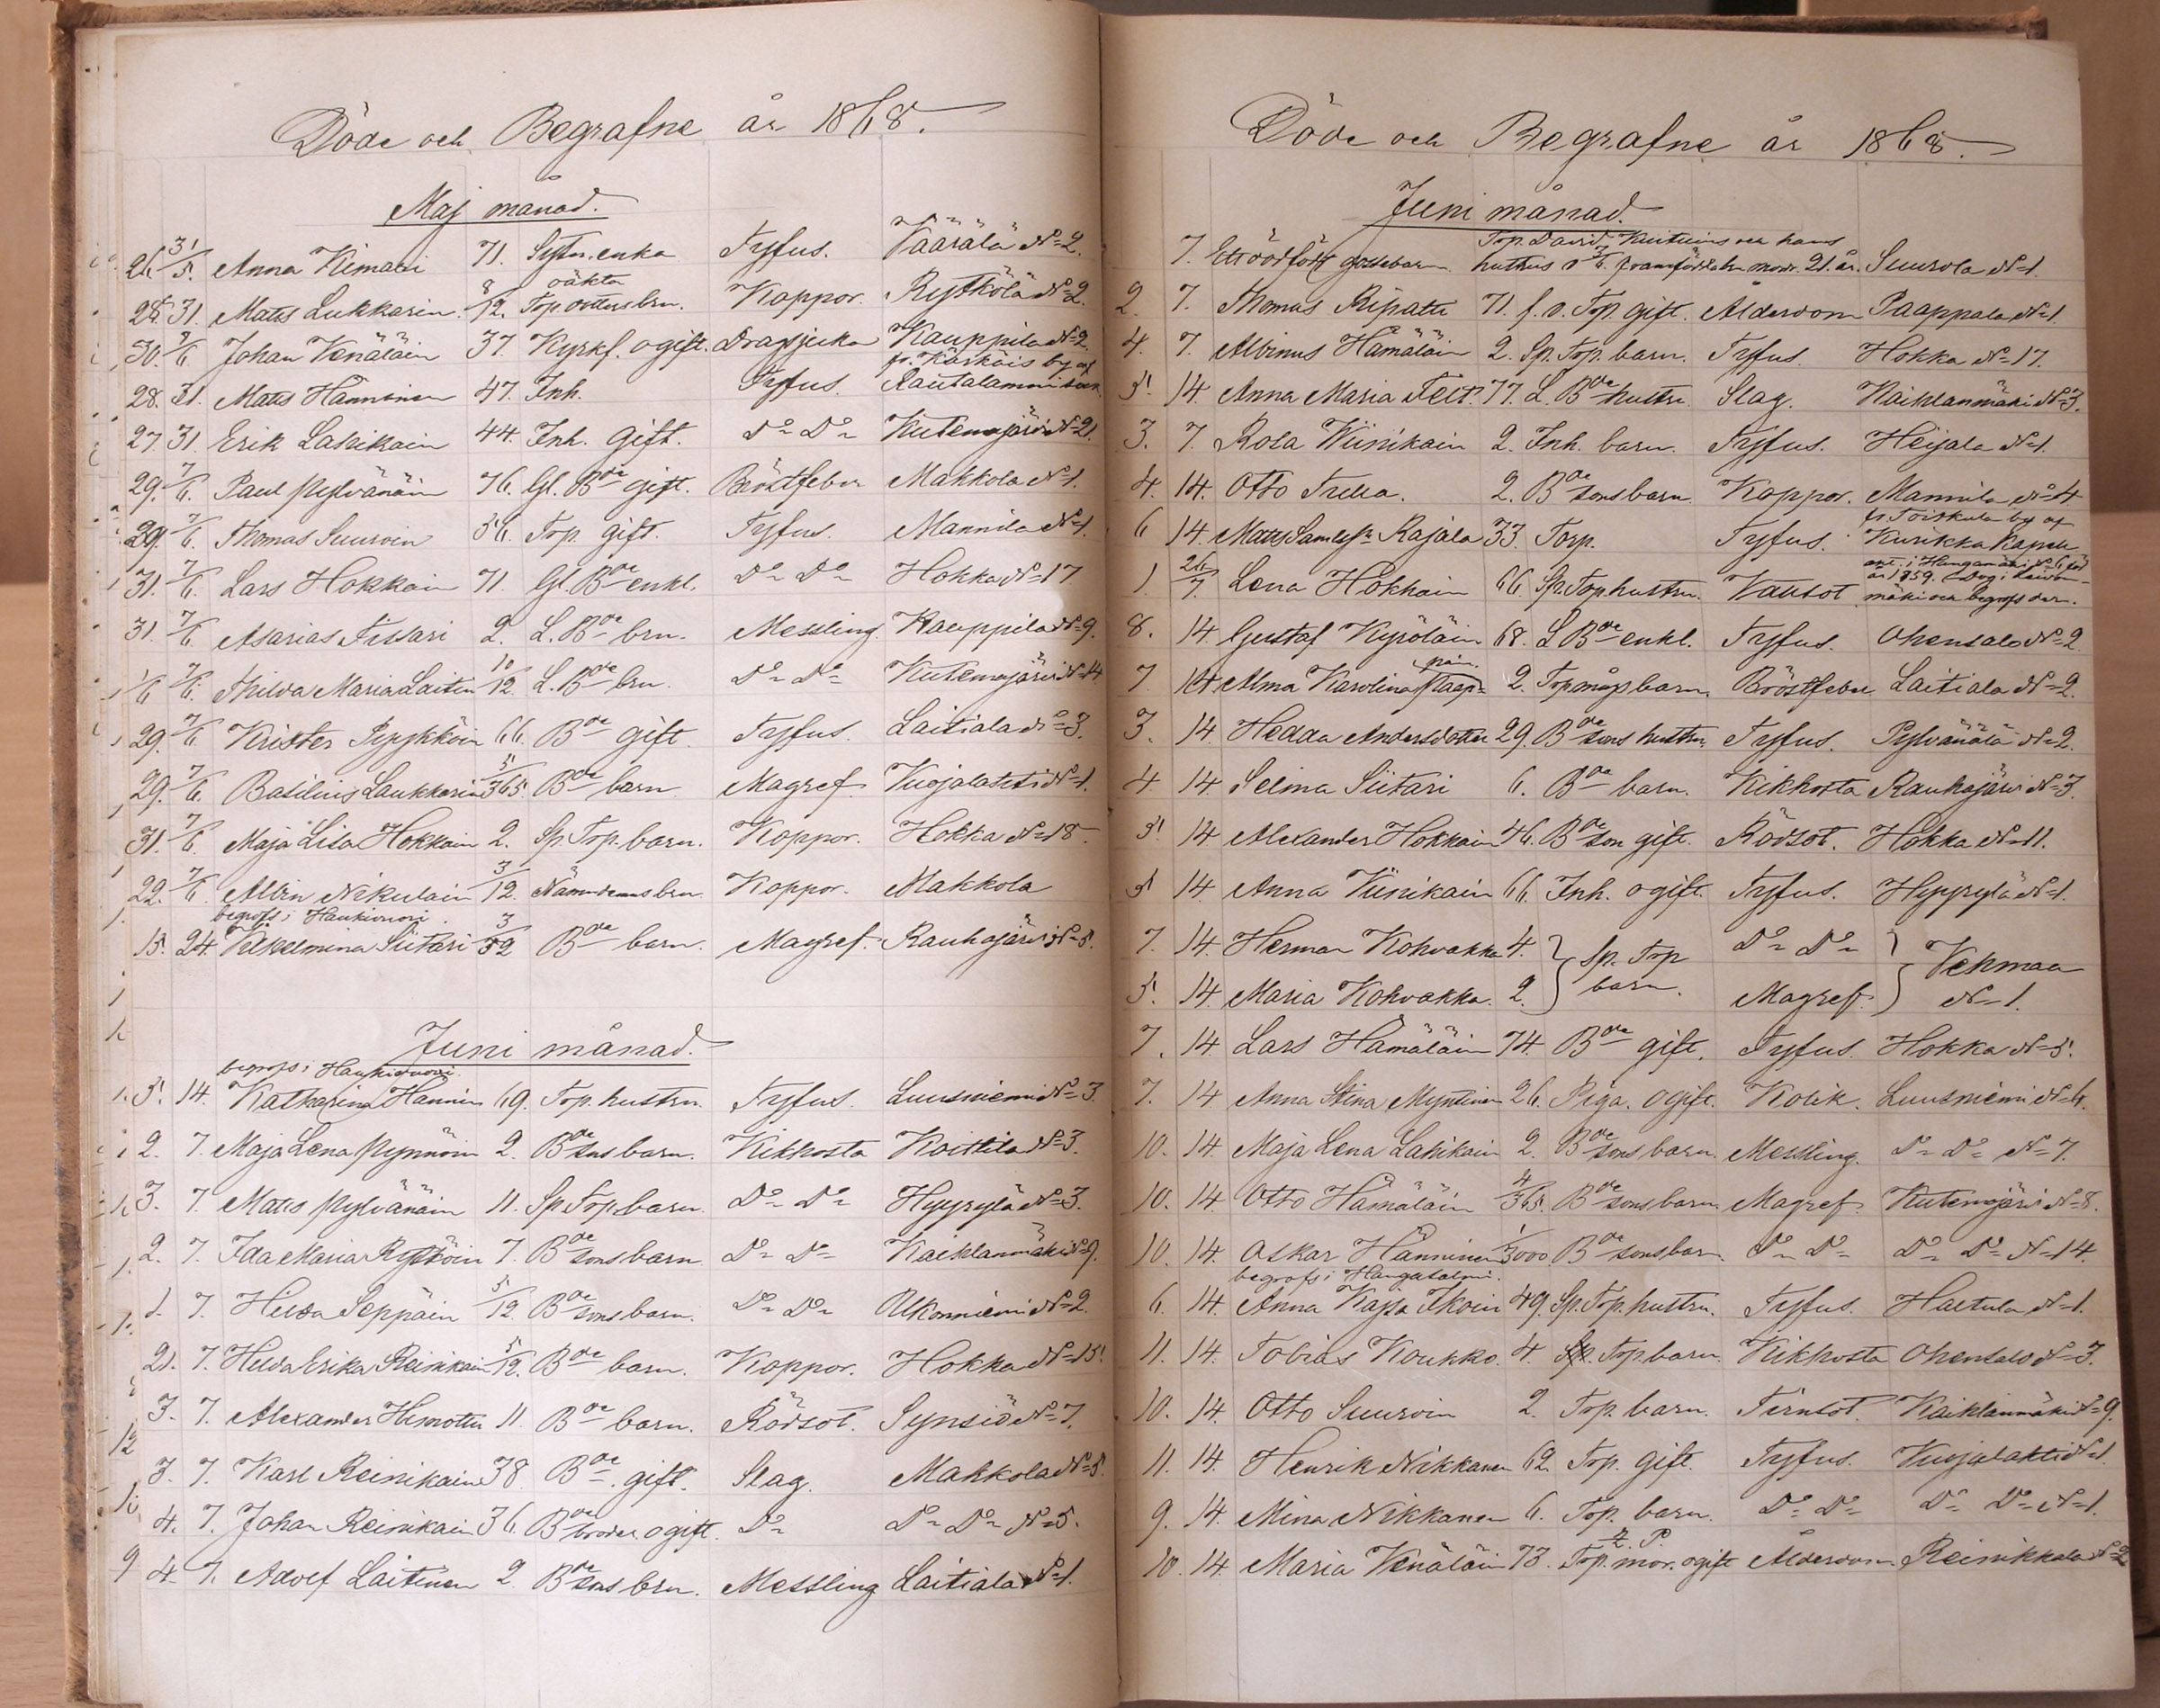 Döde och Begrafne år 1868.
Maj månad.
26. 31/5. Anna Kimari 71. Sytn. enka Tyfus. Väärälä № 2.
28. 31. Mats Lukkarin 8/12. oäkta Torp dotters brn. Koppor. Rytkölä № 2.
30. 7/6 Johan Venäläin 37. Kyrkf. ogift. Dragsjuka Kauppila № 2.
28. 31. Mats Hänninen 47. Inh. Tyfus. fr. Kärkäis by af Rautalammi sock.
27. 31. Erik Lasikain 44. Inh. gift. Do Do Kutemajärvi № 21.
29. 7/6. Paul Pylvänäin 76. Gl. Bde gift. Bröstfeber Makkola № 1.
29. 7/6. Thomas Suuroin 36. Torp. gift. Tyfus. Mannila № 1.
31. 7/6. Lars Hokkain 71. Gl. Bde enkl. Do Do Hokka № 17
31. 7/6 Asarias Tissari 2. L. Bde brn. Messling. Kauppila № 9.
1/6 7/6. Thilda Maria Laitin 10/12 L. Bde brn Do Do Kutemajärvi № 14
29. 7/6 Krister Pyykköin 66. Bde gift. Tyfus. Laitiala № 3.
29. 7/6. Basilius Laukkarin 5/365. Bde barn Magref. Vuojalahti № 1.
31. 7/6. Maja Lisa Hokkain 2. Sp. Torp. barn. Koppor. Hokka № 18
22. 7/6. Albin Nikulain 3/12. Nämndems brn. Koppor. Makkola
begrofs i Haukivuori.
15. 24. Vilhelmina Siitari 3/52 Bde barn. Magref. Rauhajärvi № 5.
Juni månad.
begrofs i Haukivuori.
5. 14. Katharina Hännin 69. Torp. hustru. Tyfus. Luusniemi № 3.
2. 7. Maja Lena Pynnöin 2. Bde sons barn. Kikhosta Koittila № 3.
3. 7. Mats Pylvänäin 11. Sp Torp barn. Do Do Hyyrylä № 3.
2. 7. Ida Maria Rytköin 7. Bde sons barn Do Do Kaiklanmäki № 9.
1. 7. Hilda Seppäin 5/12 Bde sons barn. Do Do Ukonniemi № 2.
21. 7. Hilda Erika Reinikain 5/12. Bde barn. Koppor. Hokka № 15.
3. 7. Alexander Himottu 11. Bde barn. Rödsot. Synsiö № 7.
3. 7. Karl Reinikain 38. Bde. gift. Slag. Makkola № 5.
4. 7. Johan Reinikain 36. Bde broder ogift. Do Do Do № 5.
4. 7. Adolf Laitinen 2. Bde sons brn. Messling Laitiala № 1.
Döde och Begrafne år 1868.
Juni månad.
7. Ett dödfödt gossebarn Torp. David Kuituins och hans hustrus d 7/6. framfödt modr. 21. år. Suurola № 1.
2. 7. Thomas Ripatti 71. f. d. Torp. gift. Ålderdom Paappala № 1.
4. 7. Albinus Hämäläin 2. Sp. Torp. barn. Tyfus. Hokka № 17.
5. 14. Anna Maria Telt. 77. L. Bde hustru. Slag. Kaiklanmäki № 3.
3. 7. Rosa Wiinikain 2. Inh. barn. Tyfus. Heijala № 1.
4. 14. Otto Tulla. 2. Bde sons barn. Koppor. Mannila № 4
6 14. Mats Samlsn Rajala 33. Torp. Tyfus. fr. Toiskula by af Kurikka Kapell
1. 26/7. Lena Hokkain 66. Sp. Torp hustru. Vattsot ant. i Hangamäki № 6 för år 1859. Dog i mäki och begrofs der.
8. 14 Gustaf Kyröläin 68. L Bde enkl. Tyfus. Ohensalo № 2
7 14 Alma Karolina Paap=pain. 2. Torp mågs barn. Bröstfeber Laitiala № 2.
3. 14 Hedda Andersdotter 29. Bde sons hustru. Tyfus. Pylvänälä № 2.
4. 14 Selma Siitari 6. Bde barn. Kikhosta Rauhajärvi № 3.
5 14 Alexander Hokkain 46. Bde son gift. Rödsot. Hokka № 11.
5 14 Anna Viinikain 66. Inh. ogift. Tyfus. Hyyrylä № 1.
7. 14. Herman Kohvakka 4. } Sp. Torp Do Do } Vehmaa
5. 14 Maria Kohvakka. 2. } barn. Magref. } № 1.
7. 14 Lars Hämäläin 74. Bde gift. Tyfus. Hokka № 5.
7. 14 Anna Stina Myntinen 26. Piga. ogift. Kolik. Luusniemi № 6.
10. 14. Maja Lena Lasikain 2. Bde sons barn. Messling. Do Do № 7.
10. 14. Otto Hämäläin 4/365. Bde sons barn. Magref. Kutemajärvi № 8.
10. 14. Oskar Hänninen 1/3000 Bde sons barn. Do Do Do Do № 14
begrofs i Hangastalmi.
6. 14. Anna Kajsa Ikoin 49. Sp. Torp. hustru. Tyfus. Haetula № 1.
11. 14. Tobias Koukko. 4. Sp. Torp barn. Kikhosta Ohensalo № 3.
10. 14. Otto Suuroin 2. Torp. barn. Tärnsot. Kaiklanmäki № 9.
11. 14. Henrik Nikkanen 62. Torp. gift. Tyfus. Vuojalahti № 1.
9. 14. Mina Nikkanen 6. Torp. barn. Do Do Do Do № 1.
10. 14 Maria Venäläin 73. Torp. mor. ogift Ålderdom Reinikkala № 2